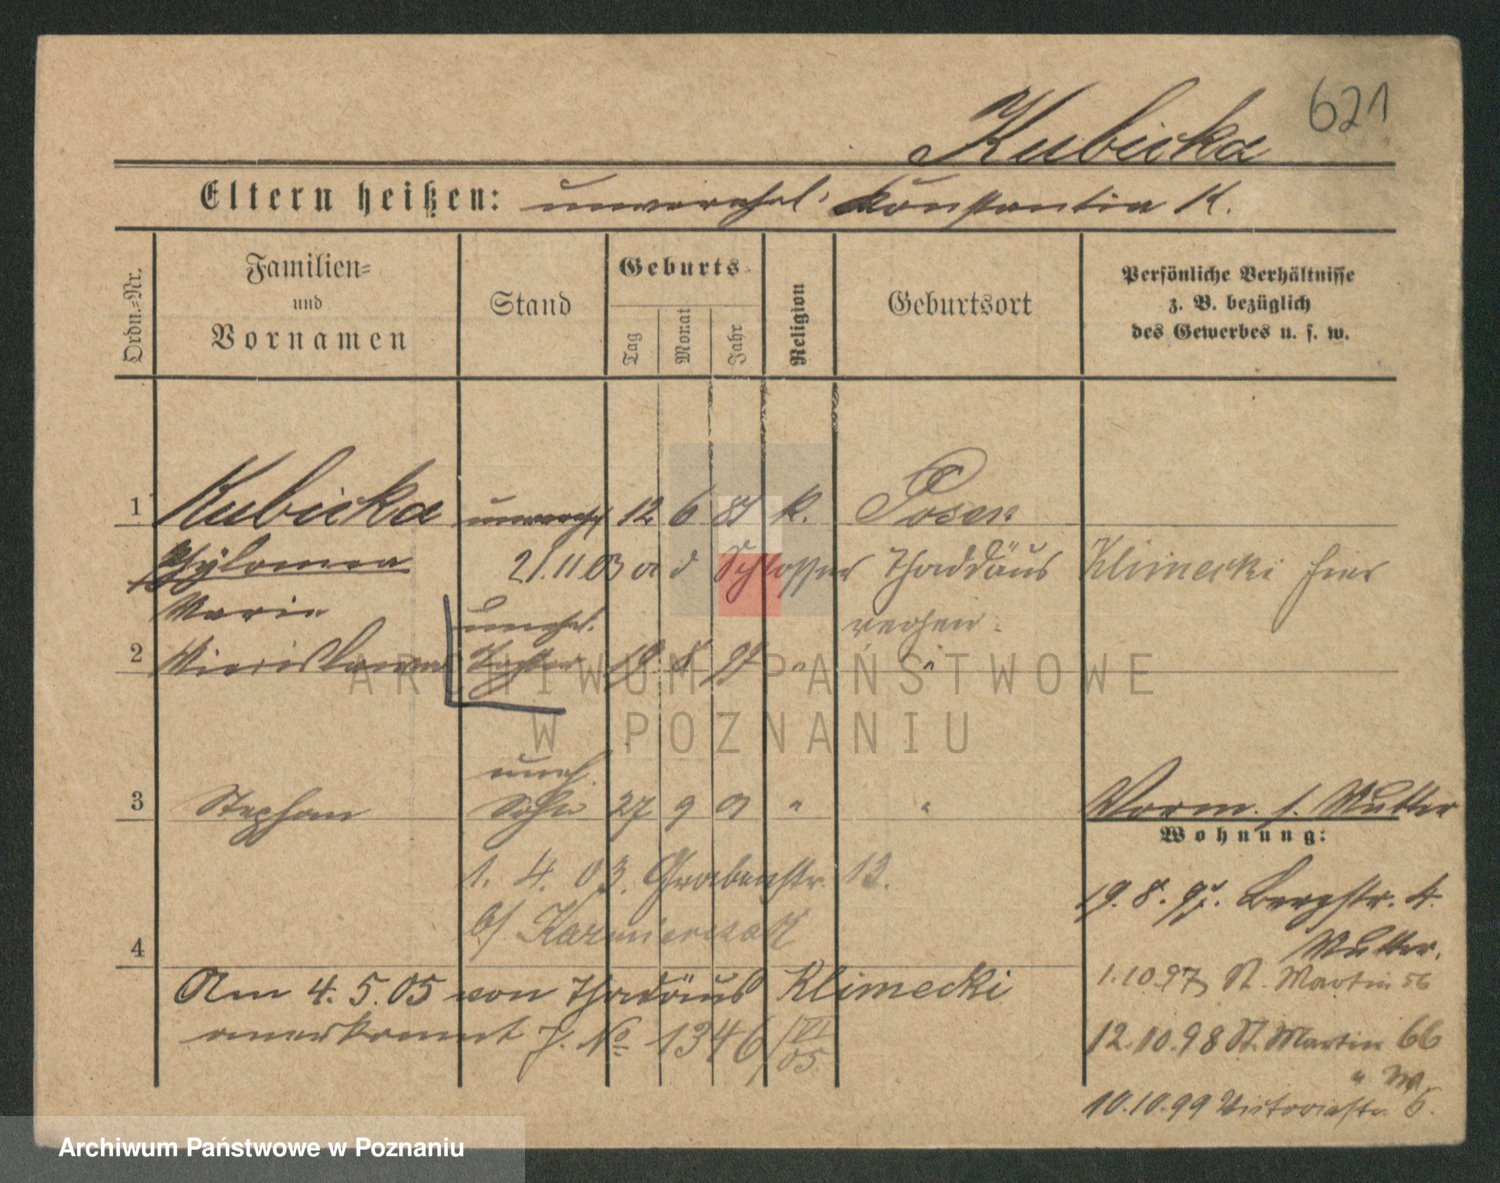 621
Kubicka
Eltern heißen: unverehel. Konstantia K.
Ordn.=Nr.
Familien=
und
Vornamen
Stand
Geburts=
Tag
Monat
Jahr
Religion
Geburtsort
Persönliche Verhältnisse
z. B. bezüglich
des Gewerbes u. s. w.
1 Kubicka 12 6 k. Posen
21.11.03 Schlosser Thaddäus Klimecki hier
Marie
verehen.
2 unehl. Tochter 18 8 97 " "
ARCHIWUM PAŃSTWOWE
W POZNANIU
3 Stephan uneh. Sohn 27 9 01 " " Vorm. s. Mutter
Wohnung:
1. 4. 03. Grabenstr. 13.
b/ Kazmierczak
19. 8. 97. Bergstr. 4.
Mutter.
4
1.10.97 St. Martin 56
Am 4.5.05 von Thadäus Klimecki
anerkannt J. No 1346/VI 05.
12.10.98 St. Martin 66
10.10.99 Victoriastr. 6.
Archiwum Państwowe w Poznaniu